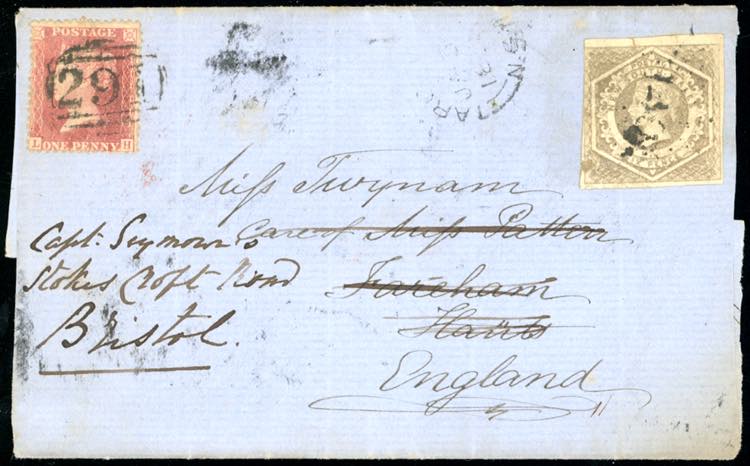 POSTAGE
29
L H
ONE PENNY
Miss Twynam
Care of Miss Patten
Capt. Seymour's
Stokes Croft Road
Bristol.
Fareham
Hants
England